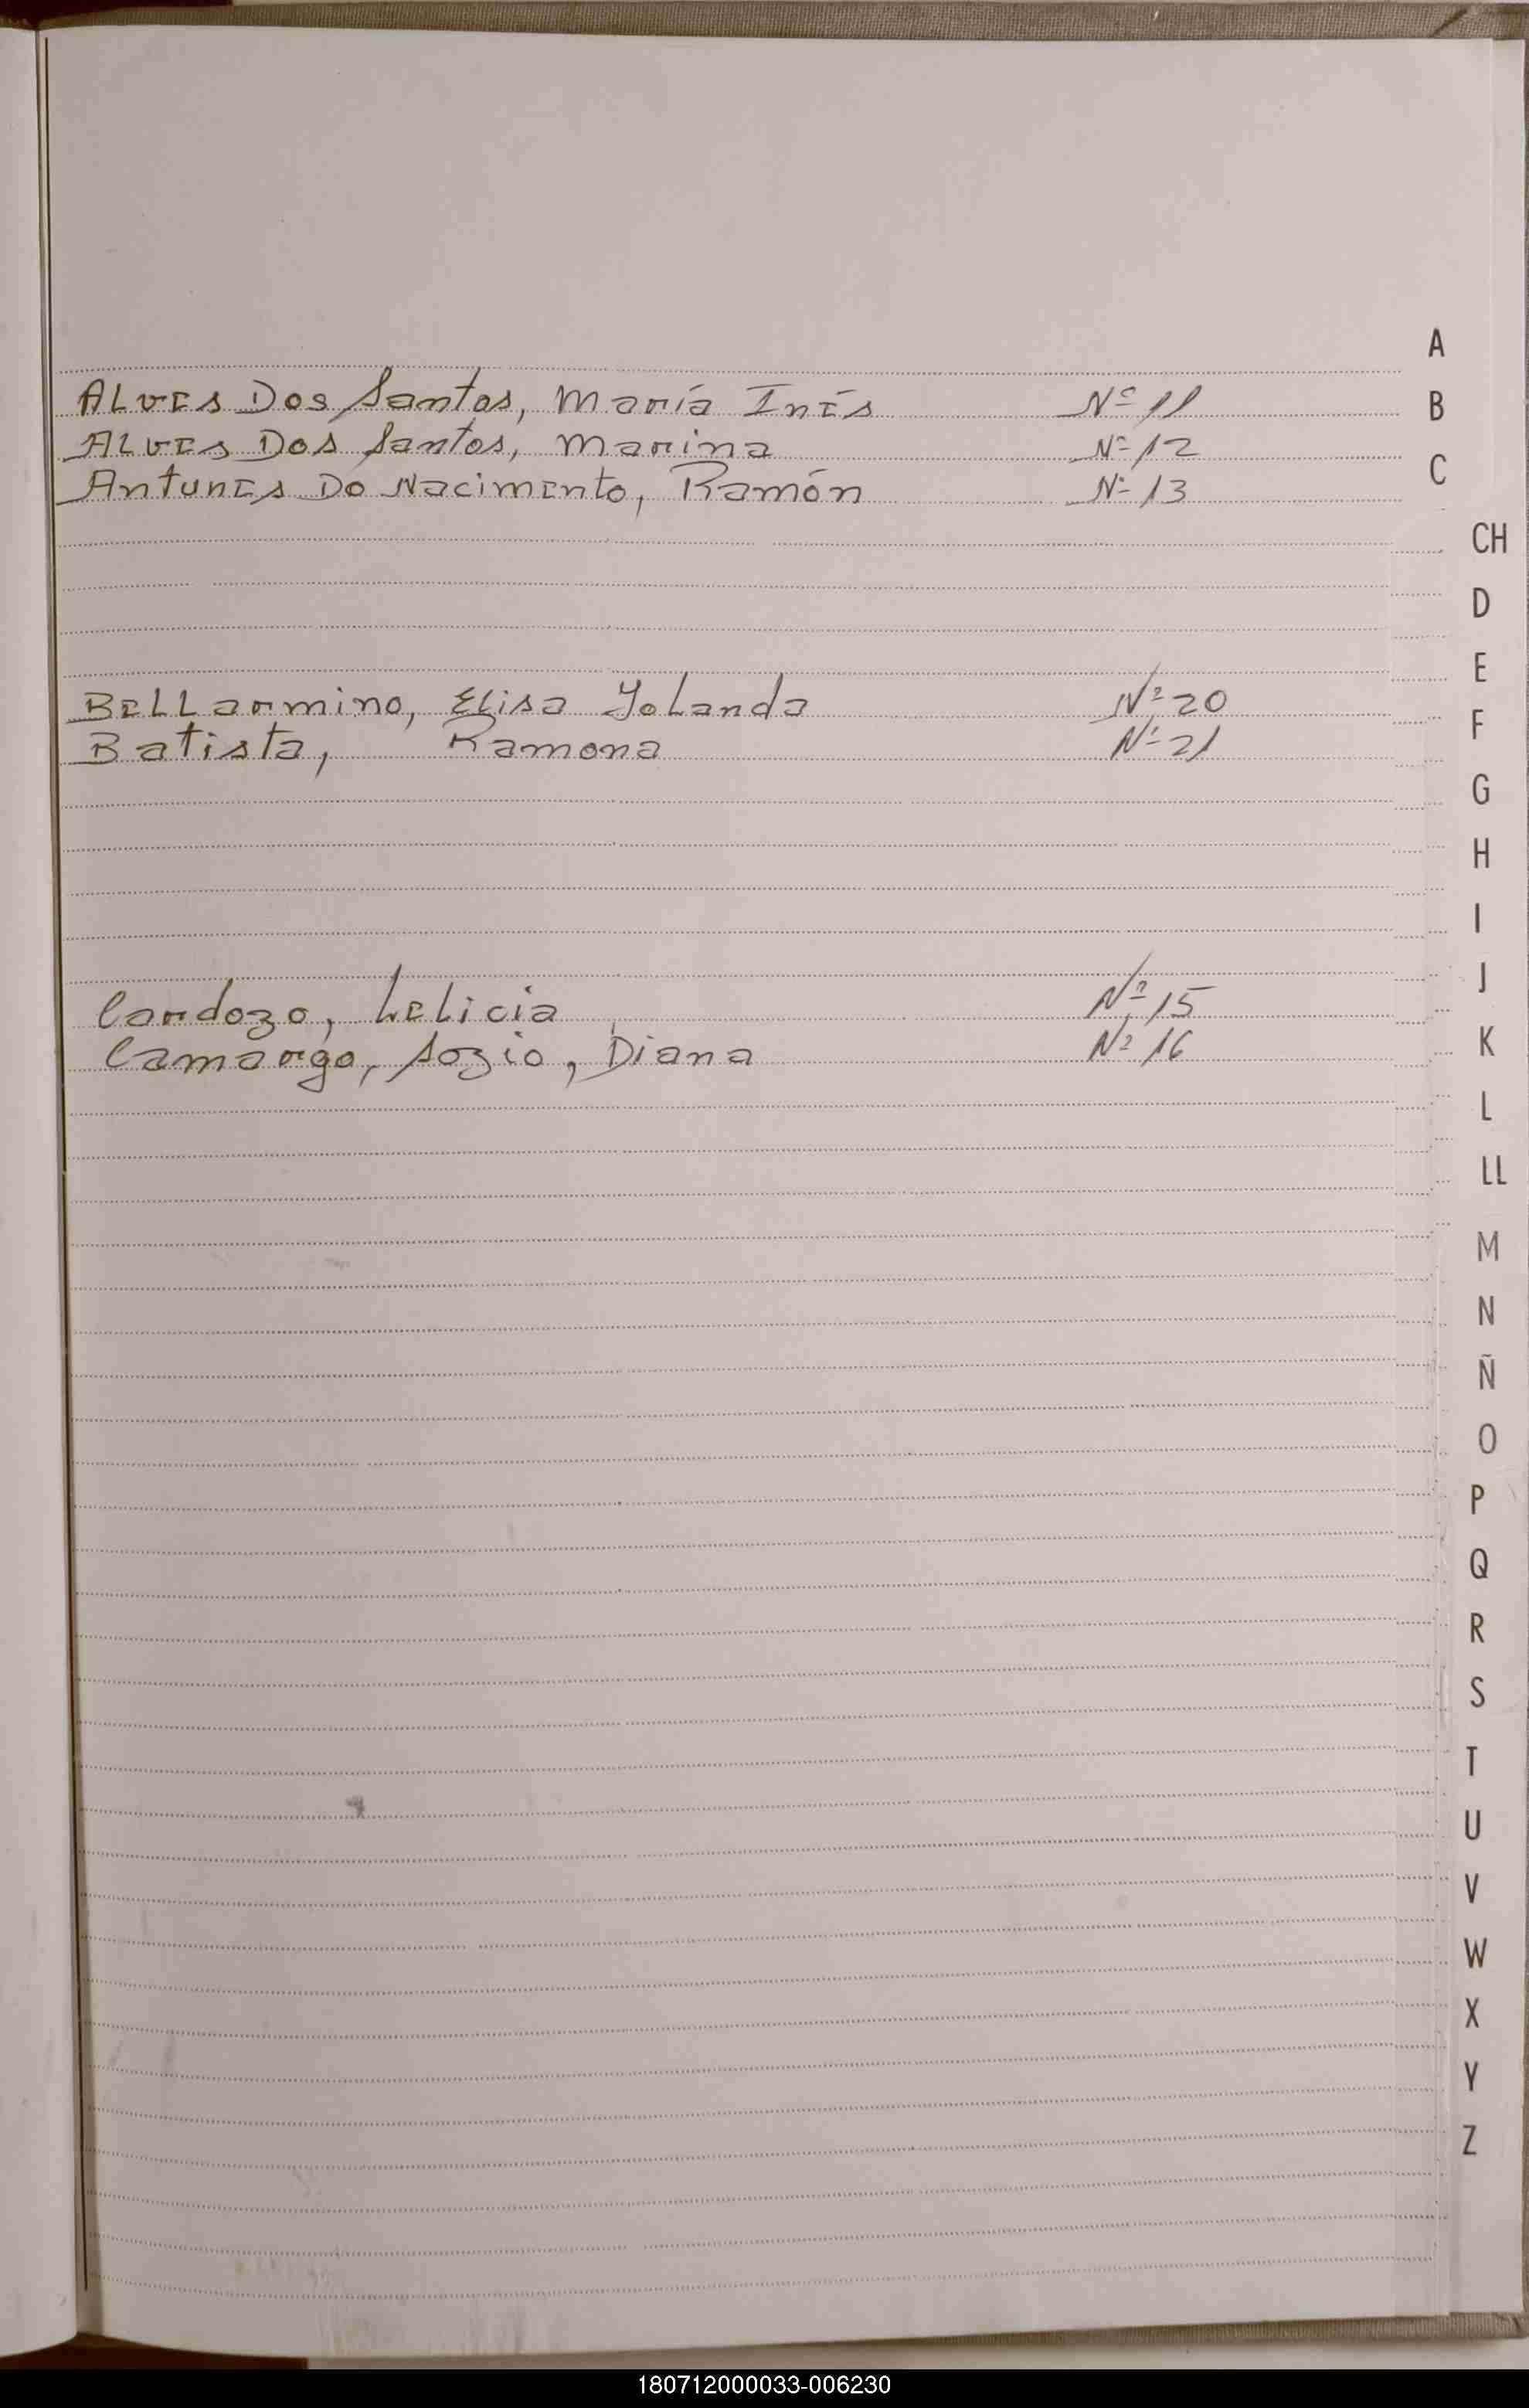 Alves Dos Santos, María Inés N° 11
Alves Dos Santos, Marina N° 12
Antunes Do Nacimento, Ramón N° 13
Bellarmino, Elisa Yolanda N° 20
Batista, Ramona N° 21
Cardozo, Lelicia N° 15
Camargo, Sozio, Diana N° 16
A
B
C
CH
D
E
F
G
H
I
J
K
L
LL
M
N
Ñ
O
P
Q
R
S
T
U
V
W
X
Y
Z
180712000033-006230